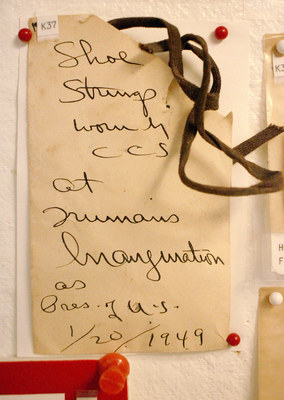 K37
Shoe
Strings
worn by
CCS
at
Trumans
Inauguration
as
Pres. of U.S.
1/20/1949
K3
H
F